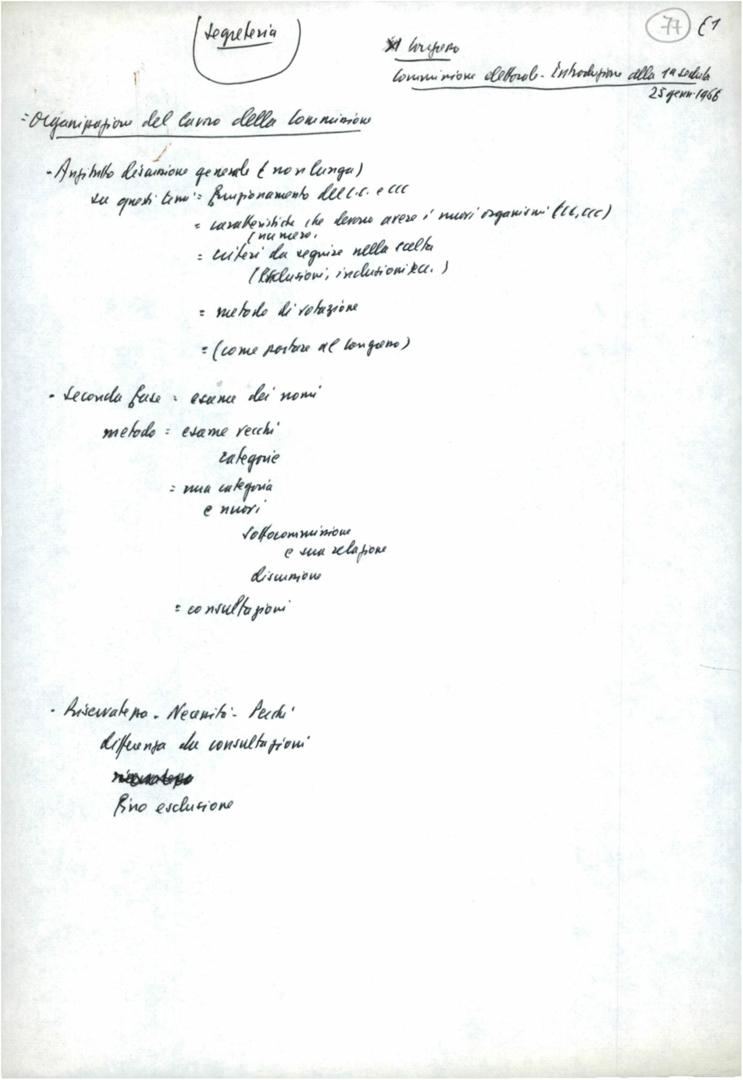 Segreteria
77 E1
XI Congresso
Commissione elettorale - Introduzione alla 1ª seduta
25 genn. 1966
= Organizzazione del lavoro della Commissione
- Anzitutto discussione generale (non lunga)
su questi temi = funzionamento del C.C. e CCC
= caratteristiche che devono avere i nuovi organismi (CC, CCC)
(numero,
= criteri da seguire nella scelta
(Esclusioni, inclusioni ecc.)
= metodo di rotazione
= (come portare al Congresso)
- Seconda fase = esame dei nomi
metodo = esame vecchi
categorie
= una categoria
e nuovi
sottocommissione
e sua relazione
discussione
= consultazioni
- Riservatezza - Necessità - Perché
differenza da consultazioni
fino esclusione